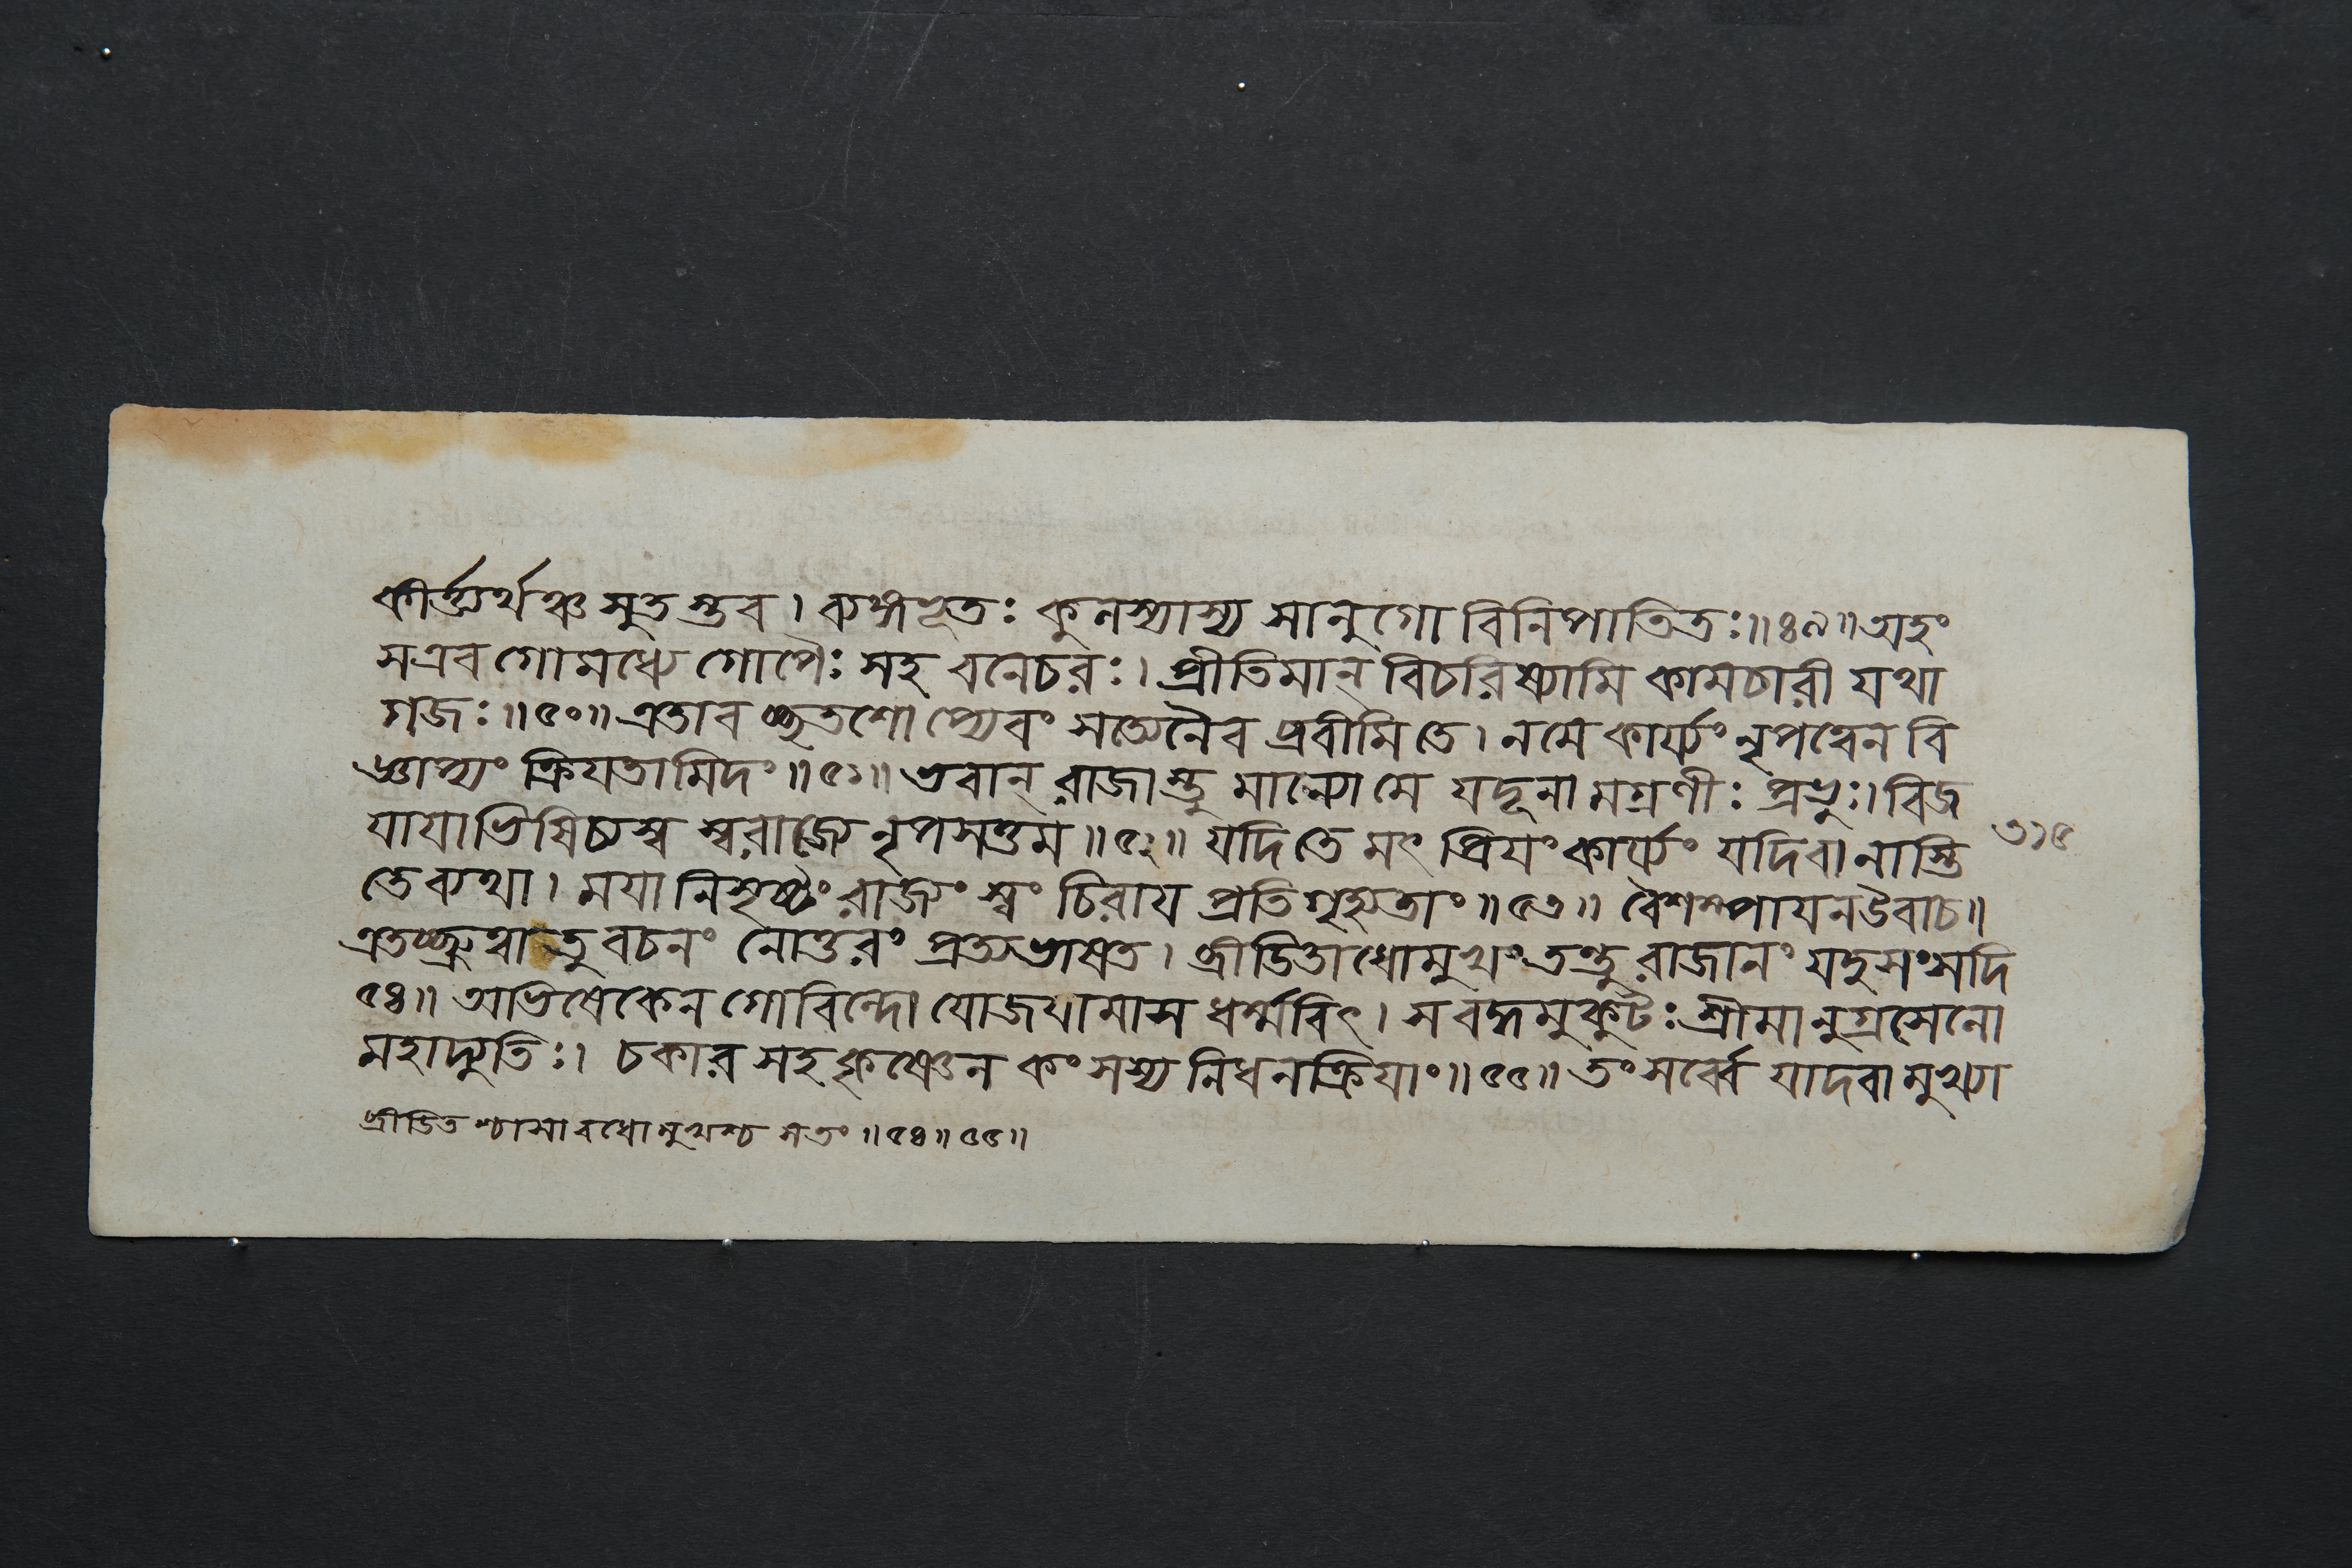 কীর্ত্ত্যর্থঞ্চ সুতস্তব । ব্যঙ্গভূতঃ কুলস্যাস্য সানুগো বিনিপাতিতঃ॥৪৯॥অহং
সএব গোমধ্যে গোপৈঃ সহ বনেচরঃ। প্রীতিমান্ বিচরিষ্যামি কামচারী যথা
গজঃ॥৫০॥এতাবচ্ছতশোপ্যেবং সত্যেনৈব প্রবীমি তে। নমে কার্য্যং নৃপত্বেন বি
জ্ঞাপ্যং ক্রিয়তামিদং॥৫১॥ ভবান্ রাজাস্তু মান্যো মে যদূনামগ্রণীঃ প্রভুঃ। বিজ
যাযাভিষিচ্যস্ব স্বরাজ্যে নৃপসত্তম॥৫২॥ যদি তে মৎ প্রিযং কার্য্যং যদিবা নাস্তি
৩১৫
তে ব্যথা। মযা নিসৃষ্টং রাজ্যং স্বং চিরায প্রতিগৃহ্যতাং॥৫৩॥ বৈশম্পাযনউবাচ॥
এতচ্ছ্রুত্বা তু বচনং নোত্তরং প্রত্যভাষত। ব্রীডিতাধোমুখং তন্তু রাজানং যদুসংসদি
৫৪॥ অভিষেকেন গোবিন্দো যোজযামাস ধর্ম্মবিৎ। স বদ্ধমুকুটঃ শ্রীমানুগ্রসেনো
মহাদ্যুতিঃ। চকার সহ কৃষ্ণেন কংসস্য নিধনক্রিযাং॥৫৫॥ তং সর্ব্বে যাদবা মুখ্যা
ব্রীডিতশ্চাসাবধোমুখশ্চ সতং॥৫৪॥৫৫॥